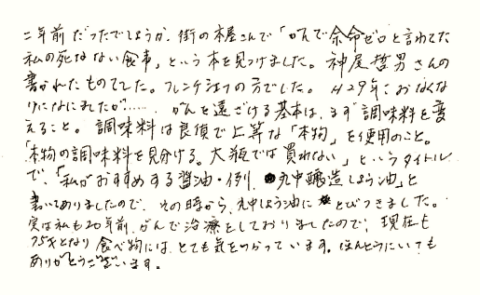 二年前だったでしょうか、街の本屋さんで「がんで余命ゼロと言われた
私の死なない食事」という本を見つけました。神尾哲男さんの
書かれたものでした。フレンチシェフの方でした。H29年におなくな
りになられたが……がんを遠ざける基本は、まず調味料を変
えること。調味料は良質で上等な「本物」を使用のこと。
「本物の調味料を見分ける。大瓶では買わない」というタイトル
で、「私がおすすめする醤油・例 丸中醸造しょう油」と
書いてありましたので、その時から、丸中しょう油にとびつきました。
実は私も20年前、がんで治療をしておりましたので、現在も
75才となり食べ物には、とても気をつかっています。ほんとうにいつも
ありがとうございます。